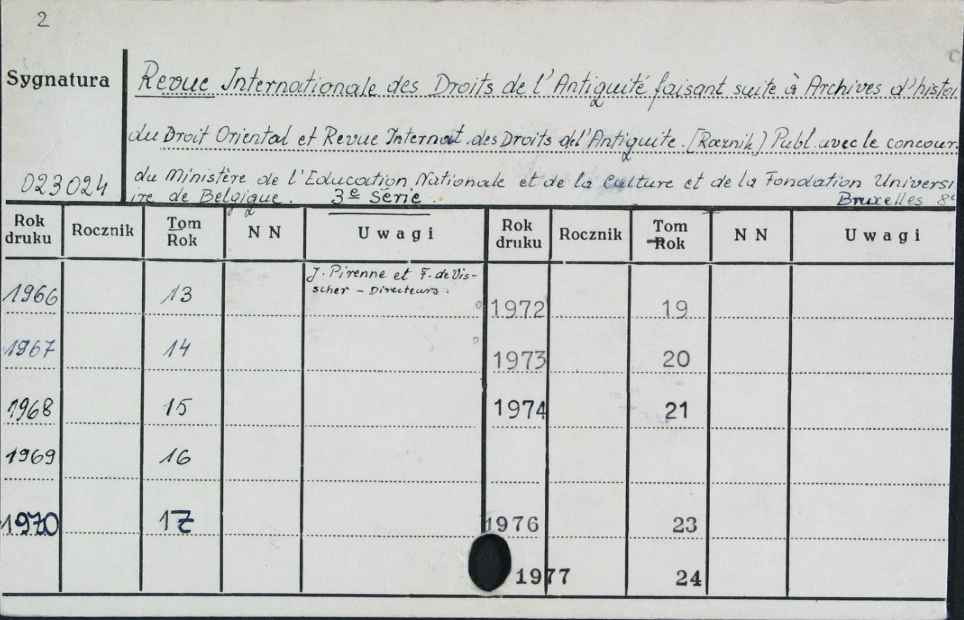 2
Sygnatura
Revue Internationale des Droits de l'Antiquité faisant suite à Archives d'histoi
du Droit Oriental et Revue Internat. des Droits de l'Antiquite. (Rocznik) Publ. avec le concour
023024
du Ministère de l'Education Nationale et de la Culture et de la Fondation Universi
ire de Belgique. 3e Série.
Bruxelles 8°
Rok druku Rocznik Tom Rok N N Uwagi Rok druku Rocznik Tom Rok N N Uwagi
J. Pirenne et F. de Vis-
scher - Directeurs.
1966 13 1972 19
1967 14 1973 20
1968 15 1974 21
1969 16
1970 17 1976 23
1977 24